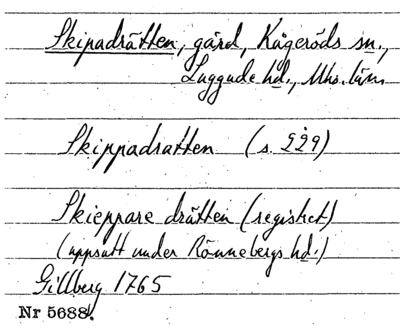 Skipadrätten, gård, Kågeröds sn.,
Luggude hd., Mhs. län.
Skippadratten (s. 229)
Skieppare drätten (registret)
(uppsatt under Rönnebergs hd.)
Gillberg 1765
Nr 5688.